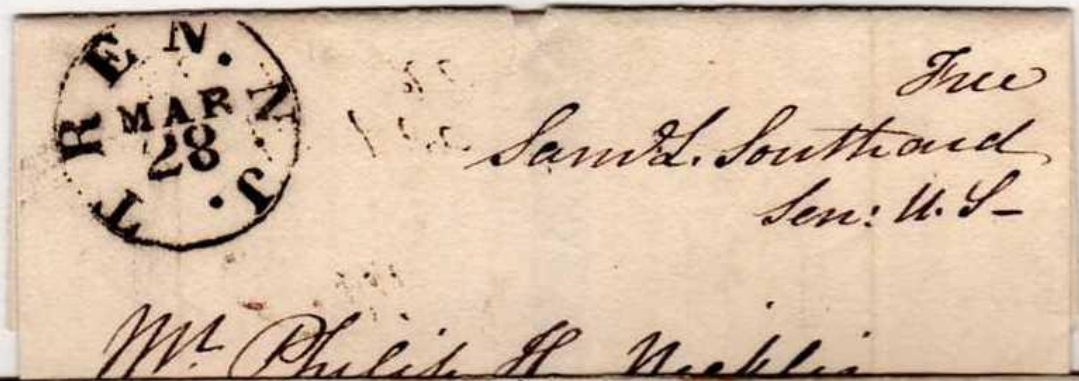 TREN. N. J.
MAR
28
Free
Saml. L. Southard
Sen: U. S–
Mr. Philip H Nicklin